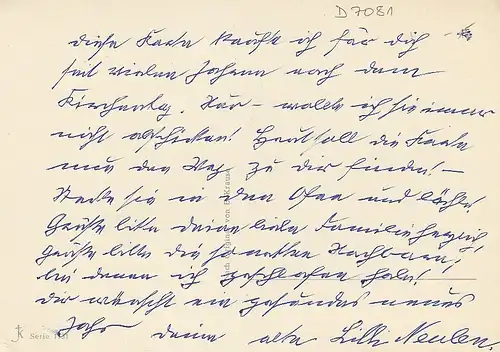 D 7081
diese Karte kaufte ich für dich
seit vielen Jahren nach dem
Kirchentag. Nur – wollte ich sie immer
nicht abschicken! Heut soll die Karte
nun den Weg zu dir finden! –
Stecke sie in den Ofen und lache!
Grüße bitte deine liebe Familie herzlich
Grüße bitte die netten Nachbarn,
bei denen ich geschlafen habe!
dir wünscht ein gesundes neues
Jahr deine alte Lilli
Serie